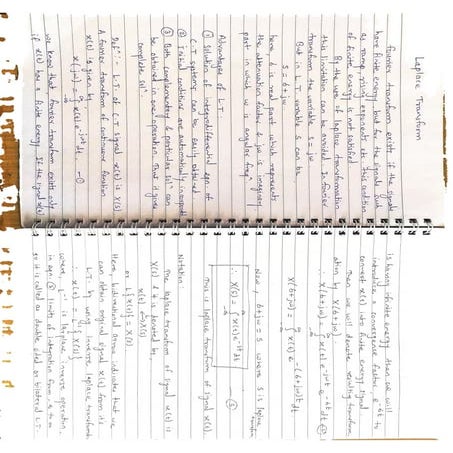 Laplace Transform
Fourier transform exists if the signals
have finite energy but for the signals such
as ramp, rising exponent this condition
of finite energy is not satisfied.
By the use of laplace transformation
this limitation can be avoided. In fourier
transform the variable s = jω
But in L.T. variable S can be
S = σ + jω
here, σ is real part which represents
the attenuation factor & jω is imaginary
part in which ω is angular freqn
Advantages of L.T.
① Solution of integrodifferential eqn of
C.T systems can be easily obtained
② Initial conditions are automatically
③ Both complementary & particular solⁿ can
be obtained in one operation. Thus it gives
complete solⁿ.
Defn :- L.T. of C.T signal x(t) is X(s)
A fourier transform of continuous function
x(t) is given by
X(jω) = ∫ x(t) e^-jωt dt —①
we know that fourier transform exists only
if x(t) has a finite energy. If the signal x(t)
is having infinite energy then we will
introduce a convergence factor e^-σt to
convert x(t) into finite energy signal
Then we will denote resulting transform
ation by X(σ+jω)
∴ X(σ+jω) = ∫ x(t) e^-jωt e^-σt dt ②
X(σ+jω) = ∫ x(t) e^-(σ+jω)t dt
Now, σ+jω = S where S is laplace
transform
∴ X(S) = ∫ x(t) e^-st dt —③
This is laplace transform of signal x(t).
Notation:
The laplace transform of signal x(t) is
X(s) & it is denoted by
x(t) ↔ X(s)
or L{x(t)} = X(s).
Here, bidirectional arrow indicates that we
can obtain original signal x(t) from its
L.T. by using inverse laplace transform
∴ x(t) = L⁻¹{X(s)}
where, L⁻¹ is laplace inverse operation.
in eqn. ③ limits of integration from -∞ to ∞
so it is called as double sided or bilateral L.T.